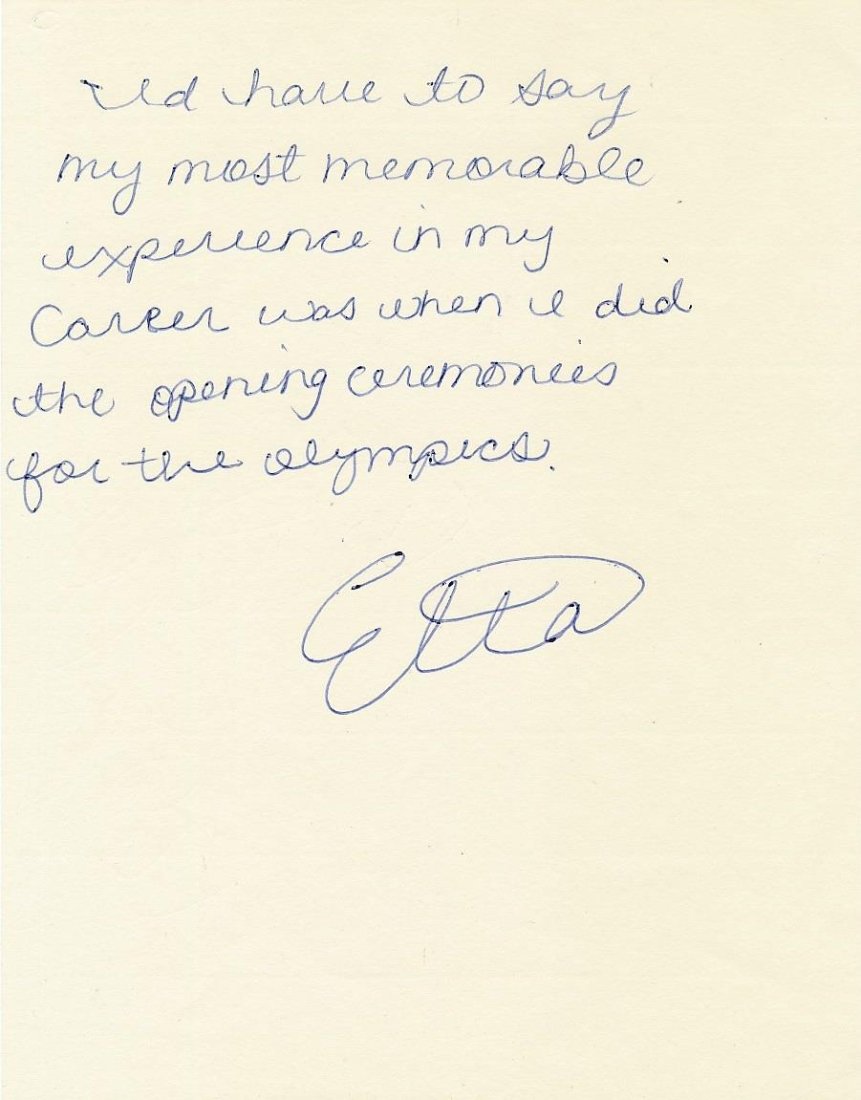 I'd have to say
my most memorable
experience in my
Career was when I did
the opening ceremonies
for the olympics.
Etta